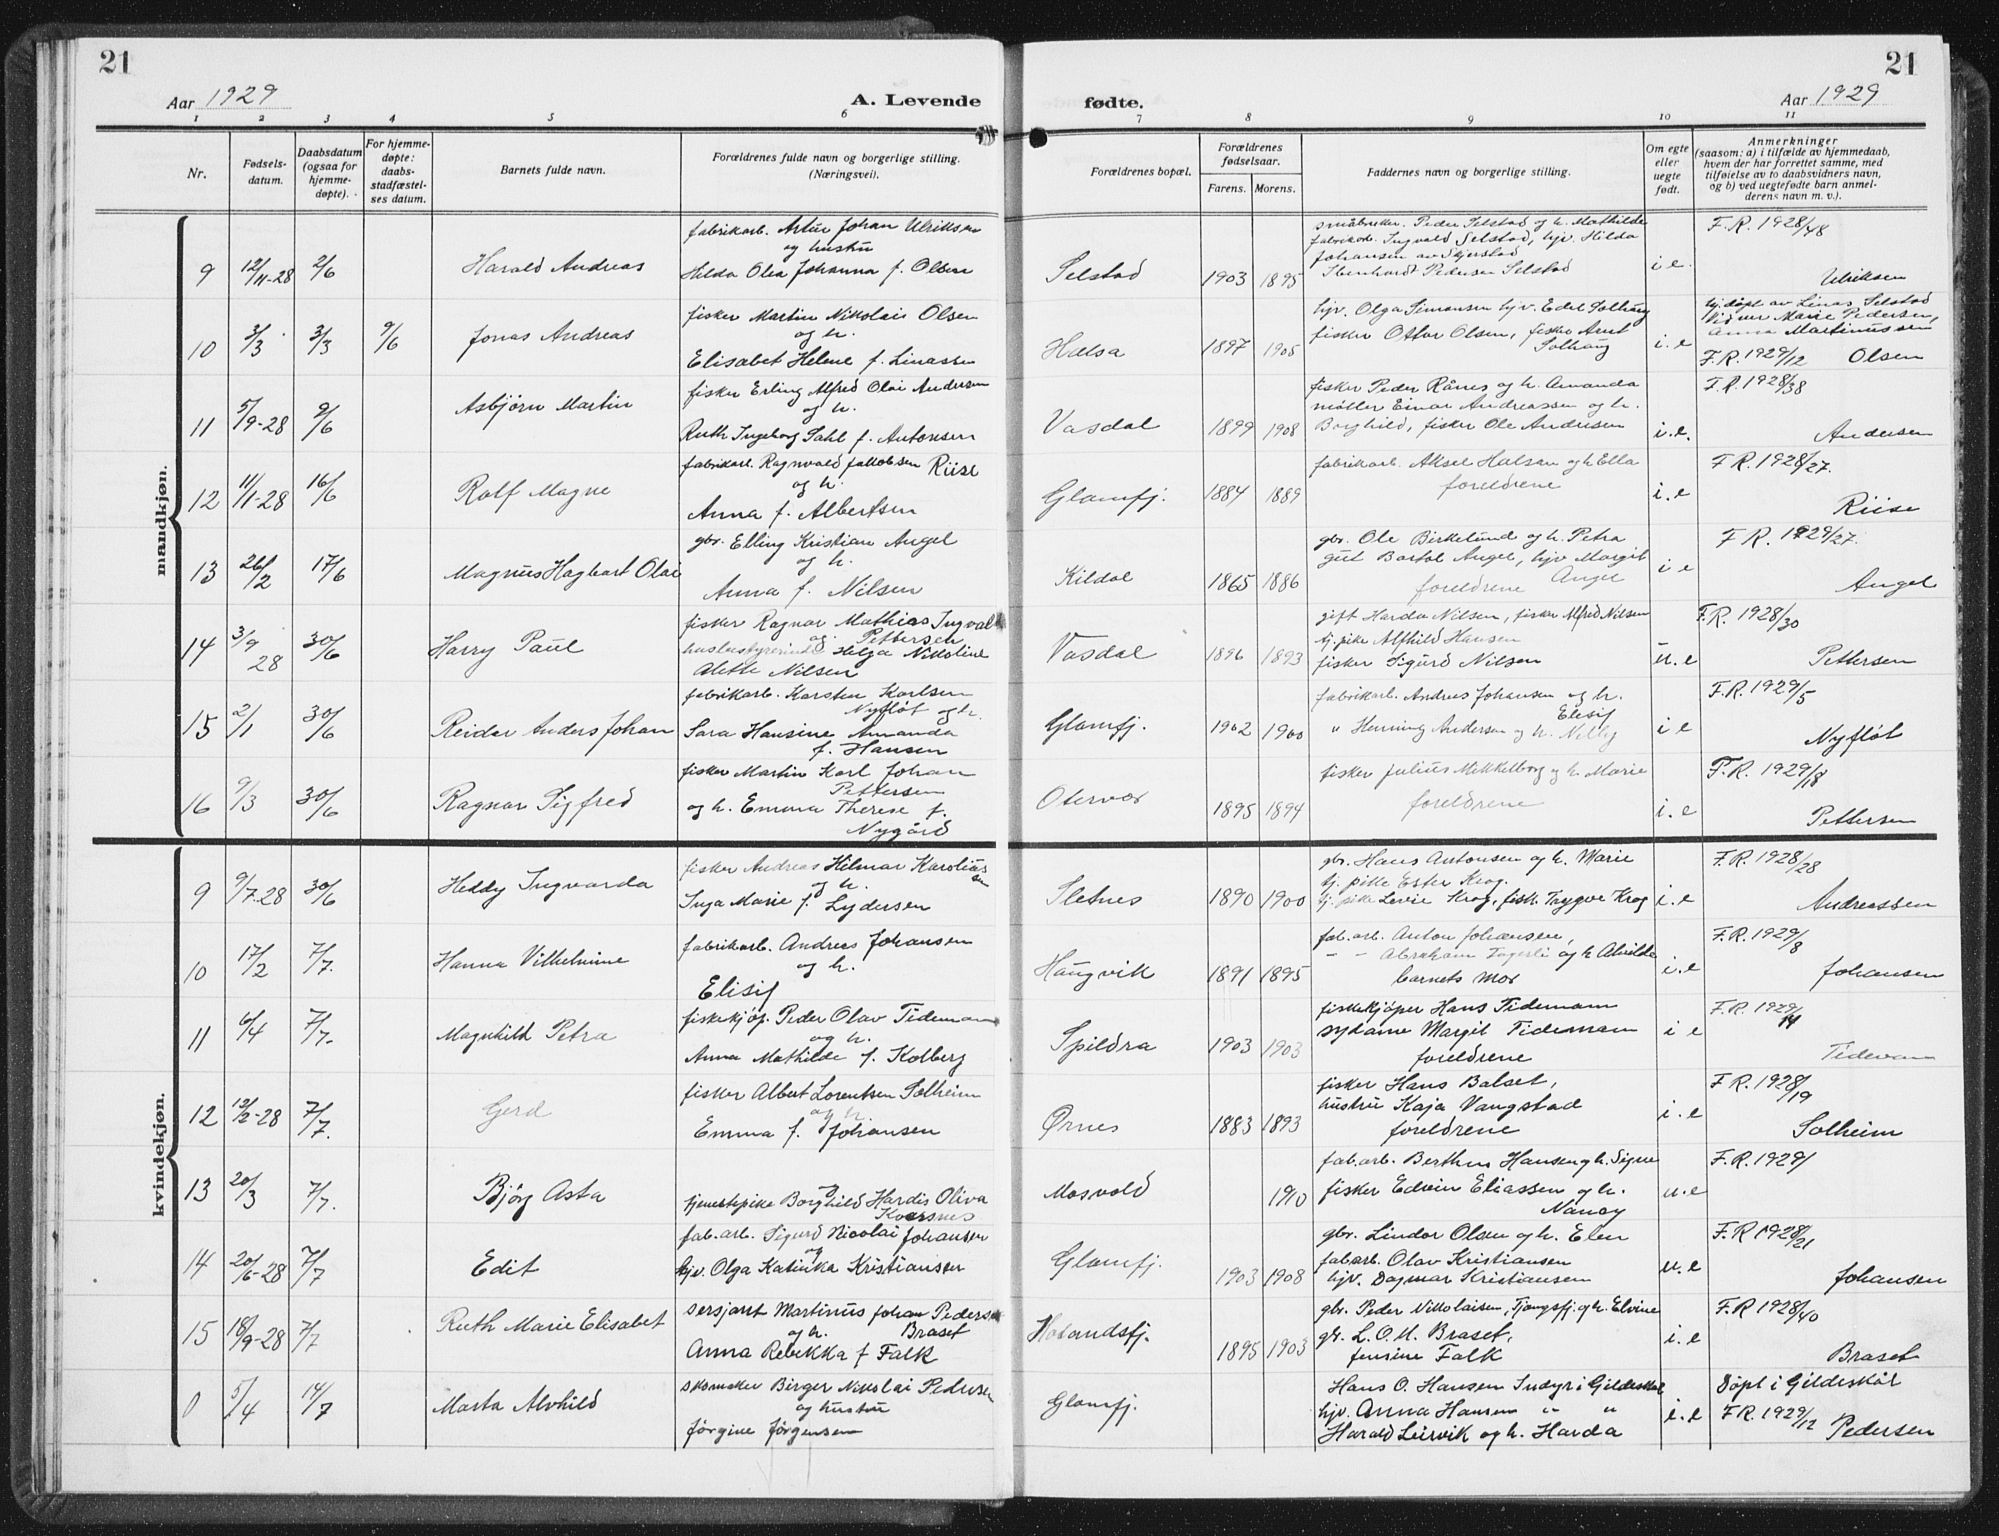 21
21
Aar 1929
A. Levende
fødte.
Aar 1929
1 2 3 4 5 6 7 8 9 10 11
Nr.
Fødsels-
datum.
Daabsdatum
(ogsaa for
hjemme-
døpte).
For hjemme-
døpte:
daabs-
stadfæstel-
ses datum.
Barnets fulde navn.
Forældrenes fulde navn og borgerlige stilling.
(Næringsvei).
Forældrenes bopæl.
Forældrenes
fødselsaar.
Farens. Morens.
Faddernes navn og borgerlige stilling.
Om egte
eller
uegte
født.
Anmerkninger
(saasom: a) i tilfælde av hjemmedaab,
hvem der har forrettet samme, med
tilføielse av to daabsvidners navn,
og b) ved uegtefødte barn anmel-
derens navn m. v.).
mandkjøn.
9 12/11-28 2/6 Harald Andreas
fabrikarb. Artur Johan Ulriksen
og hustru
Hilda Olea Johanna f. Olsen
Selstad 1903 1895
småbruker. Peder Selstad og h. Mathilde
fabrikarb. Ingvald Selstad, hjv. Hilda
Johansen av Skjerstad
Pedersen Selstad
i e.
F.R. 1928/48
Ulriksen
10 3/3 3/3 9/6 Jonas Andreas
fisker Martin Nikolais Olsen
og h.
Elisabet Helene f. Linassen
Halsa 1897 1905
hjv. Olga Simonsen hjv. Edel Solhaug
fisker Ottar Olsen, fisker Arnt
Solhaug
i. e
hj. døpt av Linas Selstad
Marie Pedersen,
Anna Martinussen
F.R. 1929/12 Olsen
11 5/9-28 9/6 Asbjørn Martin
fisker Erling Alfred Olai Andersen
og h.
Ruth Ingeborg Dahl f. Antonsen
Vasdal 1899 1908
fisker Peder Rånes og h. Amanda
møller Einar Andreassen og h.
Borghild, fisker Ole Andersen
i. e.
F.R. 1928/38
Andersen
12 11/1-28 16/6 Rolf Magne
fabrikarb. Ragnvald Jakobsen Riise
og h.
Anna f. Albertsen
Glomfj. 1884 1889
fabrikarb. Aksel Halsan og h Ella
foreldrene
i. e
F.R. 1928/27.
Riise
13 26/2 17/6 Magnus Hagbart Olai
gbr. Elling Kristian Angel
og h.
Anna f. Nilsen
Kildal 1865 1886
gbr. Ole Birkelund og h. Petra
gut Bartol Angel, hjv Margit
foreldrene Angel
i e
F.R. 1929/27.
Angel
14 3/9 28 30/6 Harry Paul
fisker Ragnar Mathias Ingval
og Pettersen
husbestyrerinde Helga Nikoline
Alette Nilsen
Vasdal 1896 1893
gift Harda Nilsen, fisker Alfred Nilsen
hj. pike Alfhild Hansen
fisker Sigurd Nilsen
u. e
F.R. 1928/30
Pettersen
15 2/1 30/6 Reidar Anders Johan
fabrikarb. Karsten Karlsen
Nyfløt og h.
Sara Hansine Amanda
f. Hansen
Glomfj. 1902 1900
fabrikarb. Andreas Johansen og h.
Elisif
" Henning Andersen og h. Nelly
i e
F.R. 1929/5
Nyfløt
16 9/3 30/6 Ragnar Sigfred
fisker Martin Karl Johan
Pettersen
og h. Emma Therese f.
Nygård
Oterver 1895 1894
fisker Julius Mikkelborg og h. Marie
foreldrene
i. e
F.R. 1929/18
Pettersen
kvindekjøn.
9 9/7-28 30/6 Heddy Ingvarda
fisker Andreas Hilmar Karolius
sen
og h.
Inga Marie f. Lydersen
Sletnes 1890 1900
gbr. Hans Antonsen og h. Marie
hj. pike Ester Krog.
hj. pike Krog, fisk. Trygve Krog
i. e
F.R. 1928/28
Andreassen
10 17/2 7/7. Hanna Vilhelmine
fabrikarb. Andreas Johansen
og h.
Elisif
Haugvik 1891 1895
fab. arb. Anton Johansen,
- - Abraham Fagerli og h Alvilde
barnets mor
i. e
F.R. 1929/8
Johansen
11 6/4 7/7. Magnhild Petra
fiskekjøp. Peder Olav Tidemann
og h.
Anna Mathilde f. Kolberg
Spildra 1903 1903
fiskekjøper Hans Tidemann
sydame Margit Tidemann
foreldrene
i e
F.R. 1929/14
12 12/2-28 7/7. Gerd
fisker Albert Lorentsen Solheim
og h.
Emma f. Johansen
Ørnes 1883 1893
fisker Hans Balset,
hustru Kaja Vangstad
foreldrene
i. e
F.R. 1928/19
Solheim
13 20/3 7/7. Bjørg Asta
og
tjenestepike Borghild Hardis Oliva
Kvarsnes
Mosvold 1910
fab.arb. Berthus Hansen og h. Signe
fisker Edvin Eliassen og h.
Nancy
u. e
F.R. 1929/
14 20/6-28 7/7 Edit
fab. arb. Sigurd Nicolai Johansen
og
hjv. Olga Katinka Kristiansen
Glomfj. 1903 1908
gbr. Lindor Olsen og h. Elen
fabarb. Olav Kristiansen
hjv. Dagmar Kristiansen
u. e
F.R 1928/21
Johansen
15 18/9-28 7/7 Ruth Marie Elisabet
sersjant Martinus Johan Peders
og h. Braset
Anna Rebekka f Falk
Holandsfj. 1895 1903
gbr. Peder Nikolaisen, Tjongsfj. og h. Elvine
gbr. L. O. M. Braset,
Jensine Falk
i. e
F.R 1928/40
Braset
0 5/4 14/7 Marta Alvhild
skomaker Birger Nikolai Pedersen
og hustru
Jørgine Jørgensen
Glomfj.
Hans O. Hansen Indyr i Gildeskål
hjv. Anna Hansen " "
Harald Leirvik og h. Harda
i. e
Døpt i Gildeskål
F.R. 1929/12
Pedersen